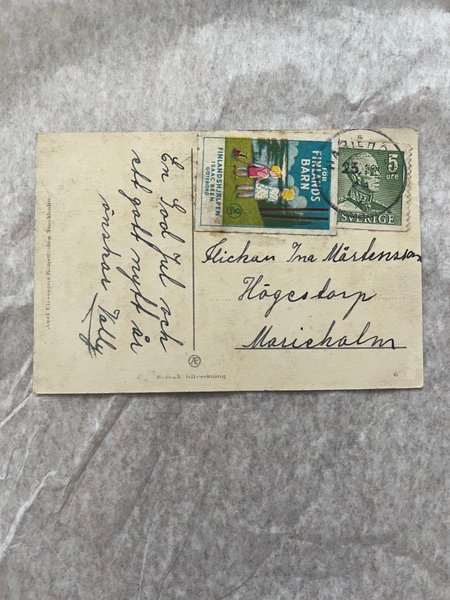 En God Jul och
ett gott nytt år
önskar Valby
FÖR
FINLANDS
BARN
FINLANDSHJÄLPEN
ISAAC BÉEN
GÖTEBORG
5
öre
SVERIGE
Flickan Ina Mårtensson
Högestorp
Marieholm
Axel Eliassons Konstförlag Stockholm
Æ
Svensk tillverkning